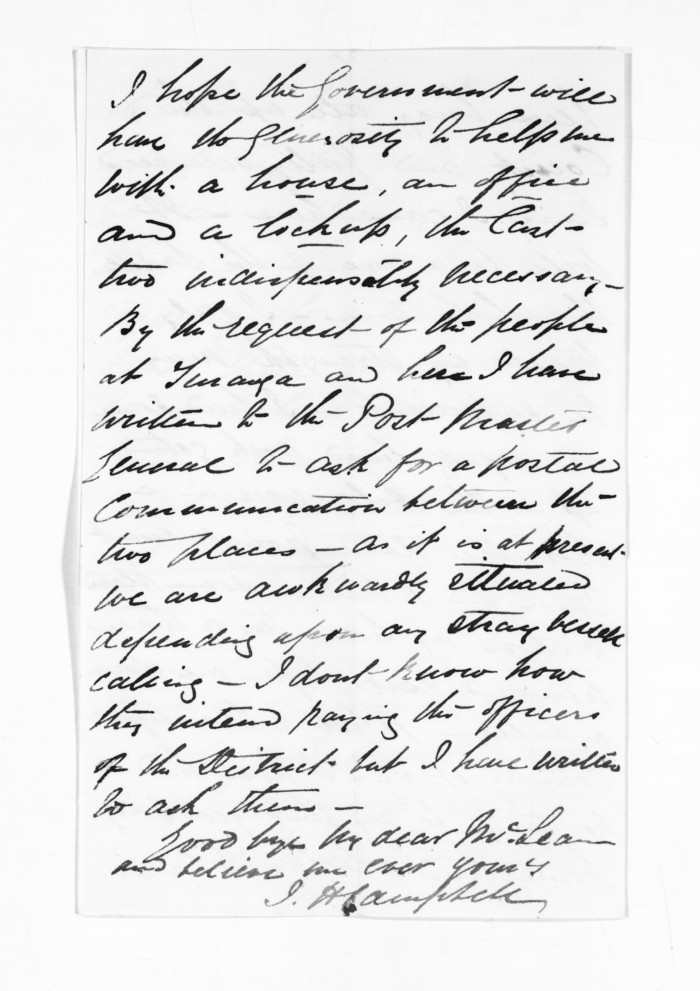 I hope the Government will
have the generosity to help me
with a house, an office
and a lock up, the last
two indispensibly necessary -
By the request of the people
at Turanga and here I have
written to the Post Master
General to ask for a postal
communication between the
two places - as it is at present
we are awkwardly situated
depending upon any stray vessel
calling - I dont know how
they intend paying the officers
of the District but I have written
to ask them -
Good bye my dear McLean
and believe me ever yours
J. H Campbell